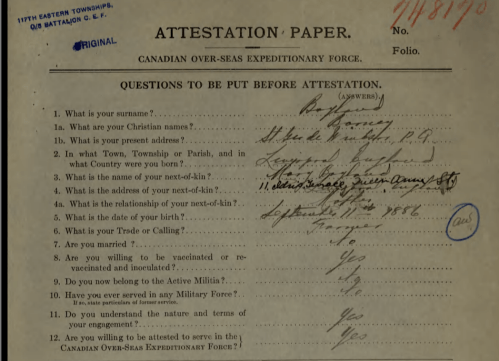 117TH EASTERN TOWNSHIPS,
O/S BATTALION C. E. F.
ORIGINAL
ATTESTATION PAPER.
No. 748190
Folio.
CANADIAN OVER-SEAS EXPEDITIONARY FORCE.
QUESTIONS TO BE PUT BEFORE ATTESTATION.
(ANSWERS)
1. What is your surname?
1a. What are your Christian names?
1b. What is your present address? P.Q.
2. In what Town, Township or Parish, and in
what Country were you born? England
3. What is the name of your next-of-kin? Mary
4. What is the address of your next-of-kin? 11 Terrace, Queen Anne St,
4a. What is the relationship of your next-of-kin?
5. What is the date of birth? September 11th 1886
6. What is your Trade or Calling? Farmer
7. Are you married? No
8. Are you willing to be vaccinated or re-
vaccinated and inoculated? Yes
9. Do you now belong to the Active Militia? No
10. Have you ever served in any Military Force? No
If so, state particulars of former service.
11. Do you understand the nature and terms of
your engagement? Yes
12. Are you willing to be attested to serve in the
CANADIAN OVER-SEAS EXPEDITIONARY FORCE? Yes